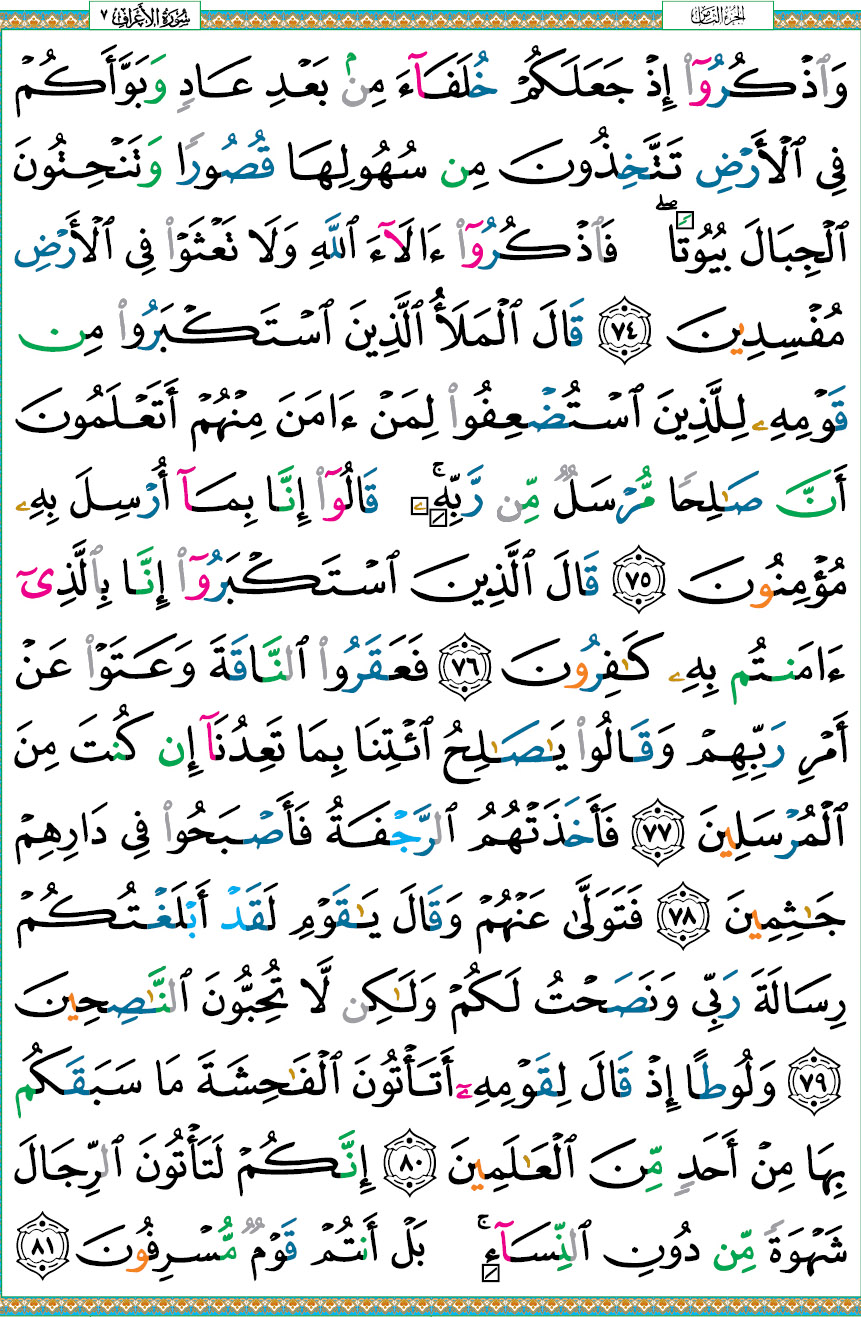 الجزء الثامن سورة الأعراف ٧
وَٱذْكُرُوٓا۟ إِذْ جَعَلَكُمْ خُلَفَآءَ مِنۢ بَعْدِ عَادٍ وَبَوَّأَكُمْ
فِى ٱلْأَرْضِ تَتَّخِذُونَ مِن سُهُولِهَا قُصُورًا وَتَنْحِتُونَ
ٱلْجِبَالَ بُيُوتًا ۖ فَٱذْكُرُوٓا۟ ءَالَآءَ ٱللَّهِ وَلَا تَعْثَوْا۟ فِى ٱلْأَرْضِ
مُفْسِدِينَ ﴿٧٤﴾ قَالَ ٱلْمَلَأُ ٱلَّذِينَ ٱسْتَكْبَرُوا۟ مِن
قَوْمِهِۦ لِلَّذِينَ ٱسْتُضْعِفُوا۟ لِمَنْ ءَامَنَ مِنْهُمْ أَتَعْلَمُونَ
أَنَّ صَـٰلِحًا مُّرْسَلٌ مِّن رَّبِّهِۦ ۚ قَالُوٓا۟ إِنَّا بِمَآ أُرْسِلَ بِهِۦ
مُؤْمِنُونَ ﴿٧٥﴾ قَالَ ٱلَّذِينَ ٱسْتَكْبَرُوٓا۟ إِنَّا بِٱلَّذِىٓ
ءَامَنتُم بِهِۦ كَـٰفِرُونَ ﴿٧٦﴾ فَعَقَرُوا۟ ٱلنَّاقَةَ وَعَتَوْا۟ عَنْ
أَمْرِ رَبِّهِمْ وَقَالُوا۟ يَـٰصَـٰلِحُ ٱئْتِنَا بِمَا تَعِدُنَآ إِن كُنتَ مِنَ
ٱلْمُرْسَلِينَ ﴿٧٧﴾ فَأَخَذَتْهُمُ ٱلرَّجْفَةُ فَأَصْبَحُوا۟ فِى دَارِهِمْ
جَـٰثِمِينَ ﴿٧٨﴾ فَتَوَلَّىٰ عَنْهُمْ وَقَالَ يَـٰقَوْمِ لَقَدْ أَبْلَغْتُكُمْ
رِسَالَةَ رَبِّى وَنَصَحْتُ لَكُمْ وَلَـٰكِن لَّا تُحِبُّونَ ٱلنَّـٰصِحِينَ
﴿٧٩﴾ وَلُوطًا إِذْ قَالَ لِقَوْمِهِۦٓ أَتَأْتُونَ ٱلْفَـٰحِشَةَ مَا سَبَقَكُم
بِهَا مِنْ أَحَدٍ مِّنَ ٱلْعَـٰلَمِينَ ﴿٨٠﴾ إِنَّكُمْ لَتَأْتُونَ ٱلرِّجَالَ
شَهْوَةً مِّن دُونِ ٱلنِّسَآءِ ۚ بَلْ أَنتُمْ قَوْمٌ مُّسْرِفُونَ ﴿٨١﴾